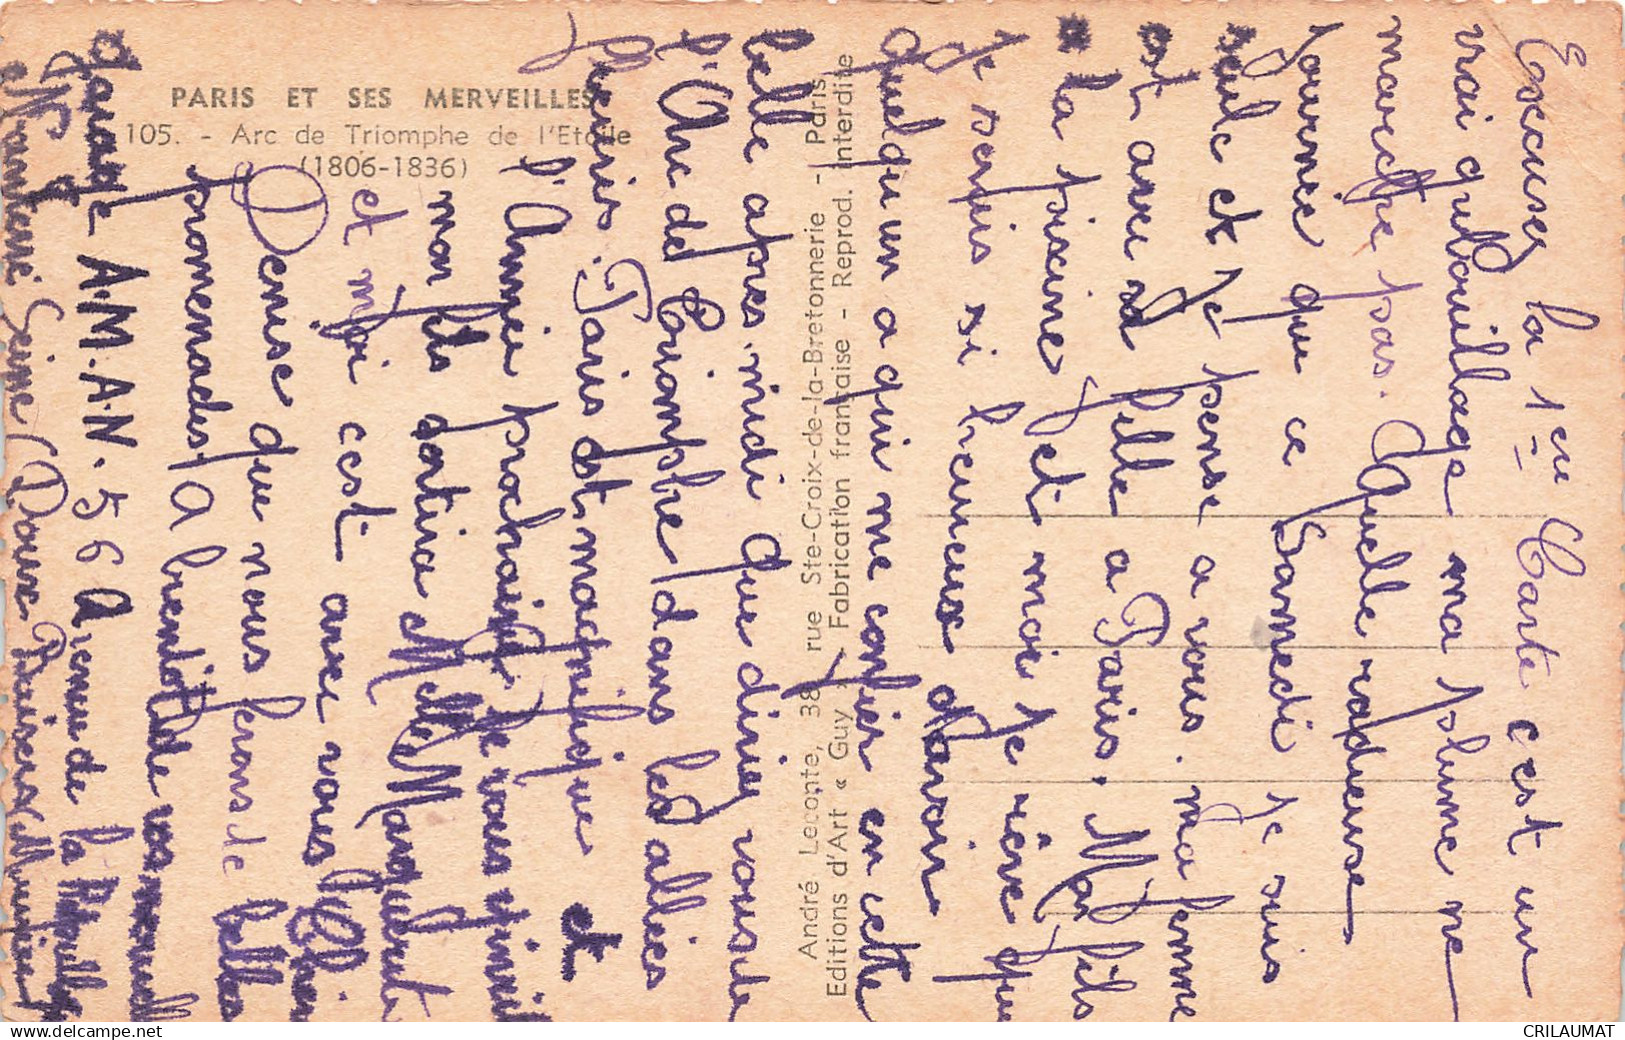 PARIS ET SES MERVEILLES
105. - Arc de Triomphe de l'Etoile
(1806-1836)
André Leconte, 38 rue Ste-Croix-de-la-Bretonnerie - Paris
Editions d'Art « Guy » - Fabrication française - Reprod. Interdite
Exscusez la 1ere Carte c'est un
vrai gribouillage ma plume ne
marche pas. Quelle radieuse
journée que ce Samedi je suis
seule et je pense a vous. ma femme
est avec sa fille a Paris. Mon fils
a la piscine, et moi je rêve que
je serais si heureux d'avoir
quelqu'un a qui me confier en cette
belle apres-midi que diriez vous de
l'Arc de Triomphe dans les allées
fleuries. Paris est magnifique et
l'Année prochaine je vous
mon fils sortira Melle Marguerite
et moi c'est avec vous
Denise que nous ferons de belles
promenades. A bientôt de vos nouvelles
garage A.M.A.N. 56 Avenue de la
Nanterre Seine (Doux Baisers
CRILAUMAT